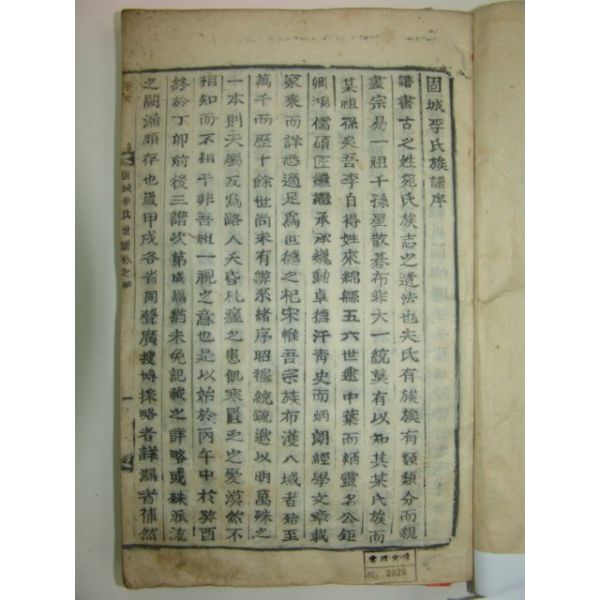 固城李氏族譜序
譜書古之姓苑氏族志之遺法也夫氏有族族有類類分而親
盡宗易一祖千孫星散碁布非大一統莫有以知其某氏族而
某祖孫矣吾李自得姓來綿緜五六世逮中葉而炳靈名公鉅
卿鴻儒碩匠繼繼承承巍勳卓德汗青史而炳朗經學文章載
家乘而詳悉適足爲世德之杞宋惟吾宗族布濩八域者殆至
萬千而歷十餘世尚未有譜系緖序昭穆統䟽遬以明萬殊之
一本則天屬反爲路人天昏札瘥之患飢寒匱乏之憂漠然不
相知而不相干非吾祖一視之意也是以始於丙午中於癸酉
終於丁卯前後三譜次第成編猶未免記載之詳略或殊派流
之闕漏頗存也歲甲戌各省同聲廣搜博採略者詳漏者補然
固城李氏世譜卷之
一
2828